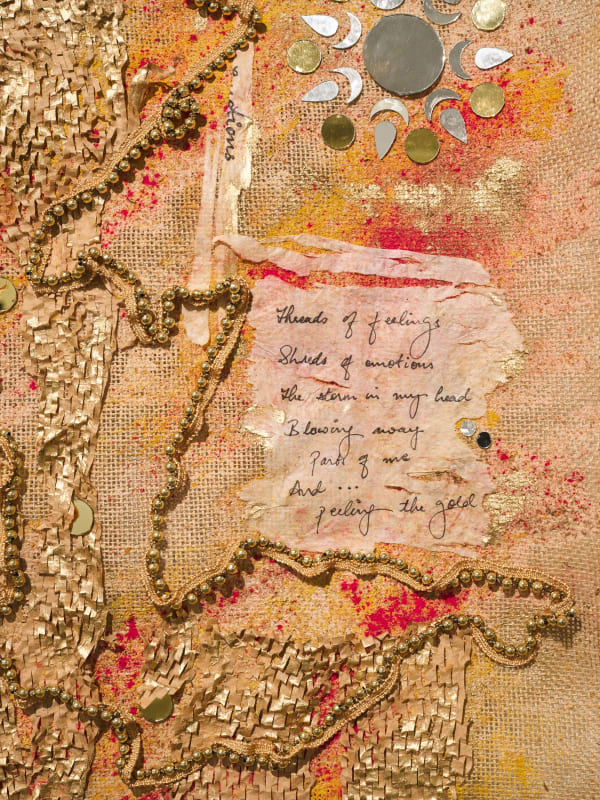 otions
Threads of feelings
Shreds of emotions
The storm in my head
Blowing away
Parts of me
And ...
peeling the gold